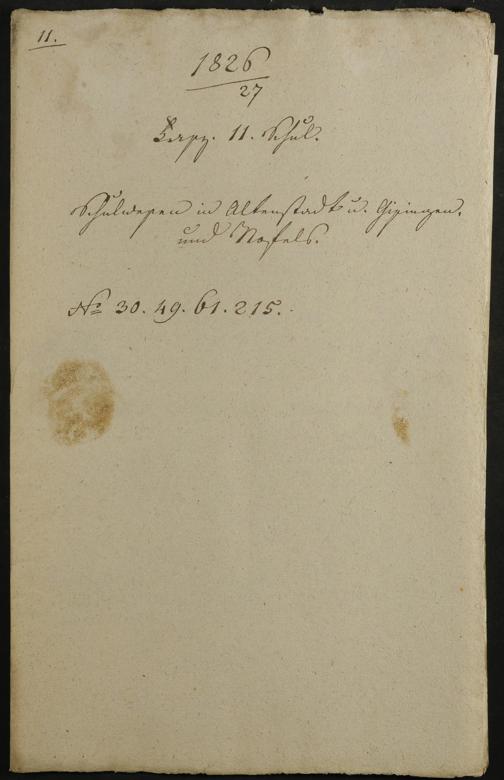 11.
1826
27
Fasz. 11. Schul.
Schulwesen in Altenstadt u. Gisingen,
und Nofels.
No 30. 49. 61. 215.